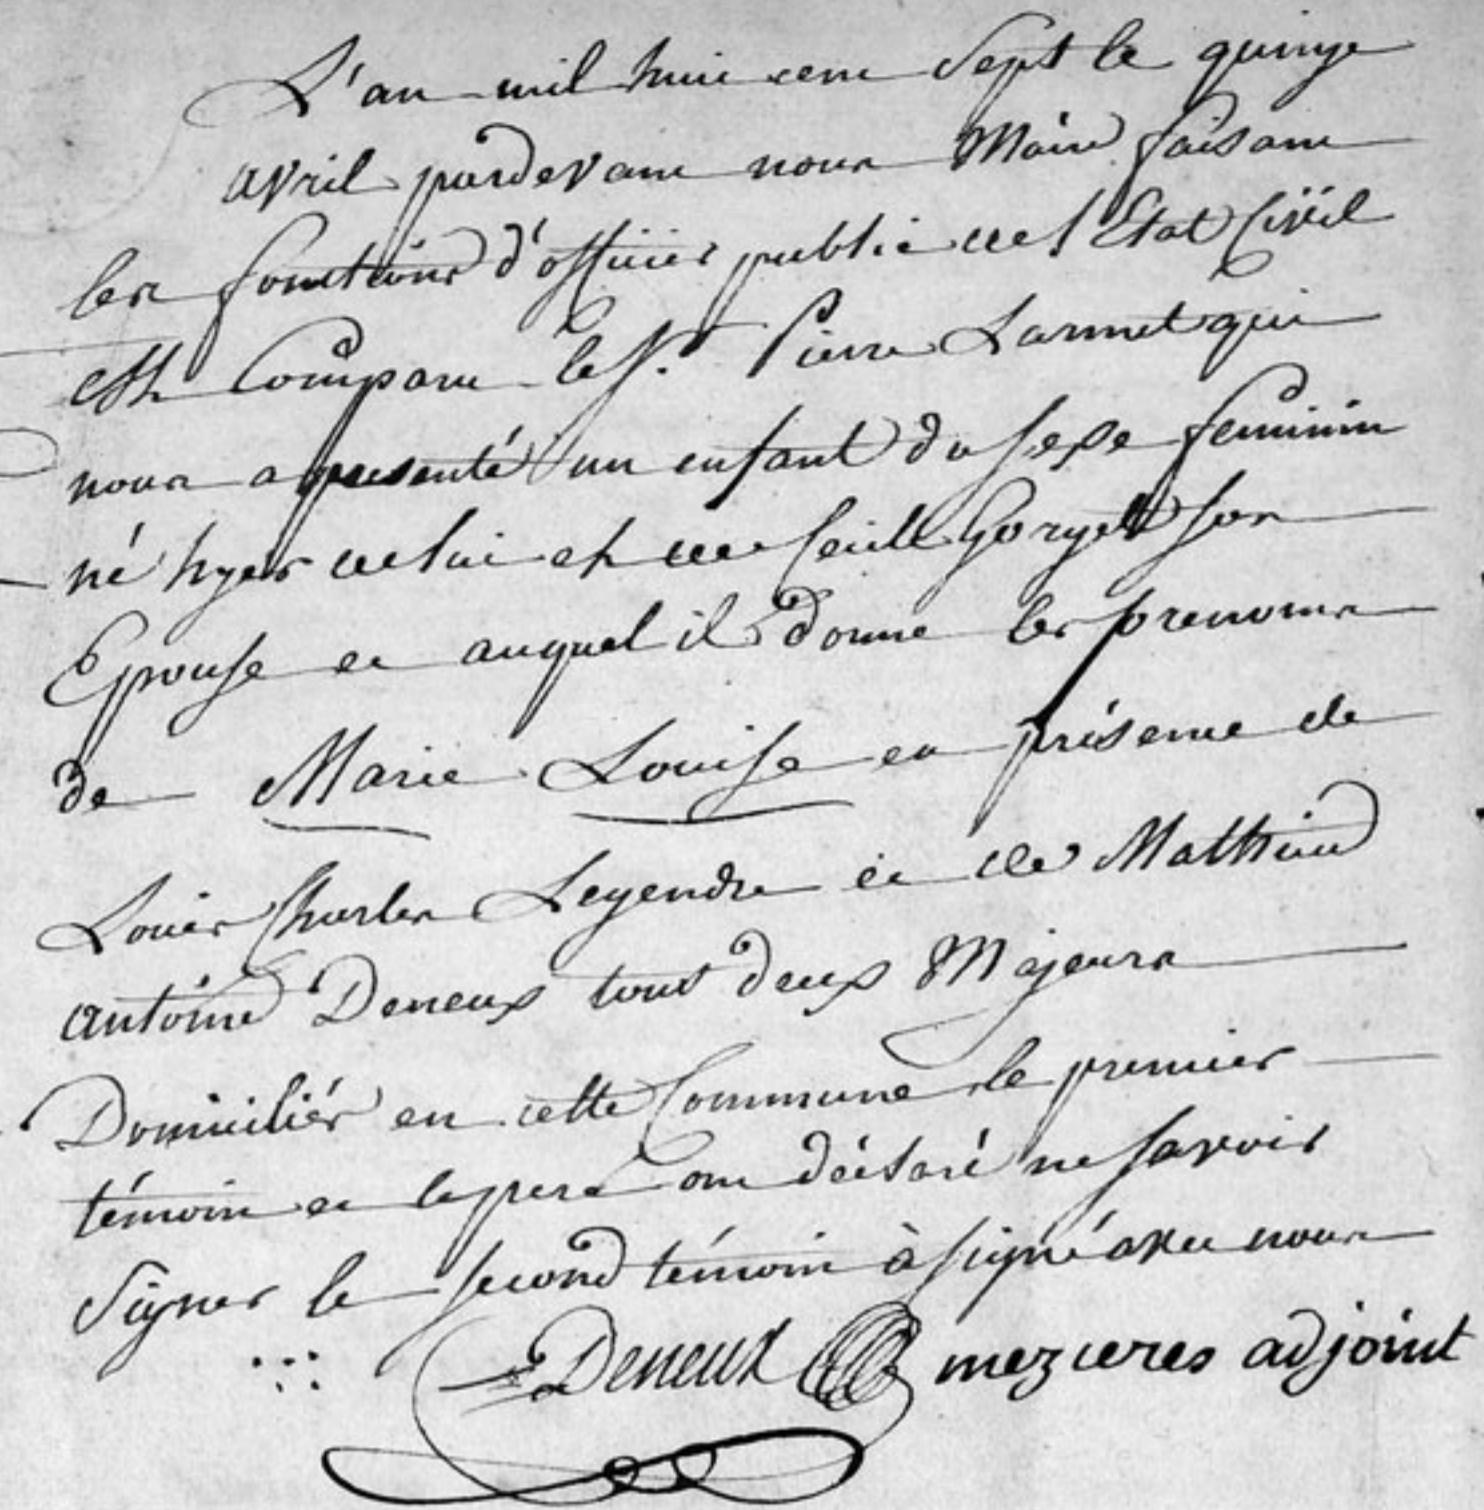 L'an mil huit cent Sept le quinze
avril pardevant nous Maire faisant
les fonctions d'officier public de l'Etat Civil
est Comparu le S.r Pierre Lannet qui
nous a presenté un enfant du sexe feminin
né hyer de lui et de Cecile Gorget son
Epouse et auquel il donne les prenoms
de Marie Louise en présence de
Louis Charles Legendre et de Mathieu
antoine Deneux tout deux Majeurs
Domiciliés en cette Commune le premier
témoin et le pere ont déclaré ne savoir
Signer le second témoin à signé avec nous
Deneux mezieres adjoint